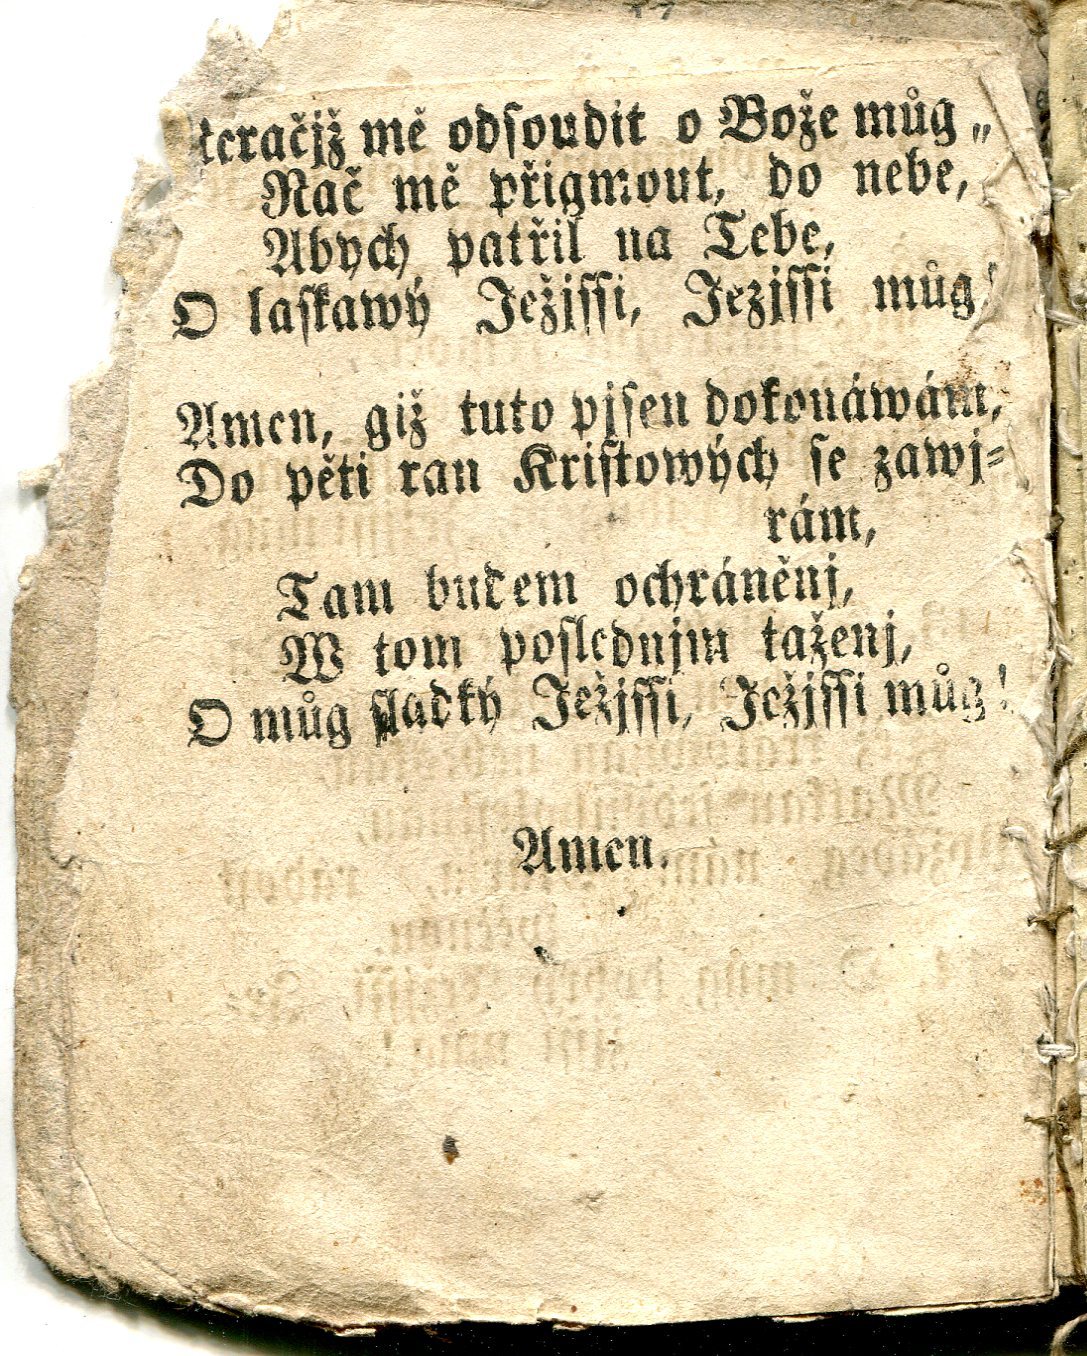 neračjž mě odsoudit o Bože můg„
Rač mě přigmout, do nebe,
Abych patřil na Tebe,
O laskawý Ježjssi, Jezjssi můg!
Amen, giž tuto pjsen dokonáwám,
Do pěti ran Kristowých se zawj-
rám,
Tam budem ochráněnj,
W tom poslednjm taženj,
O můg sladký Ježjssi, Ježjssi můg!
Amen.